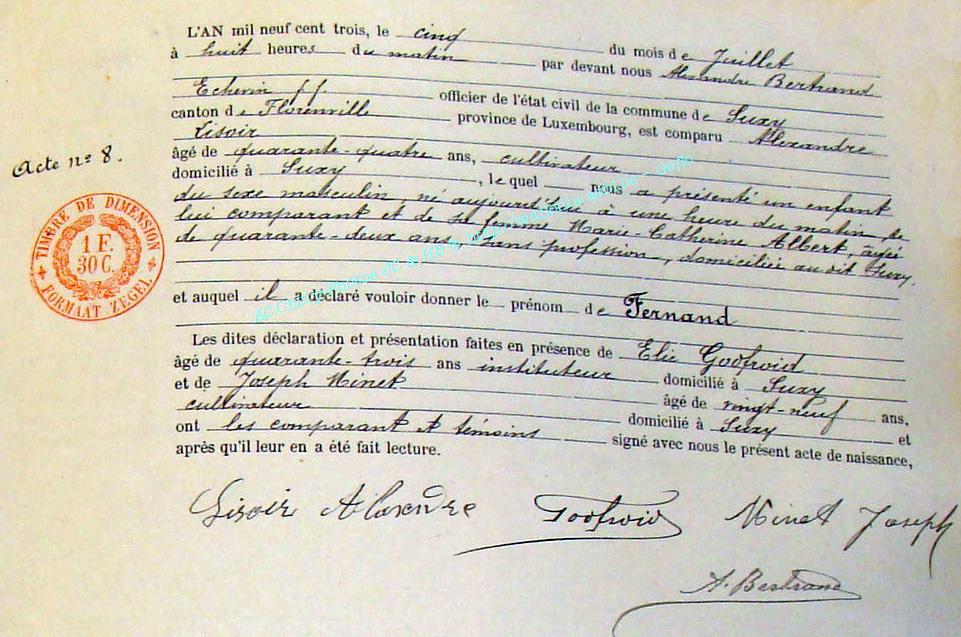 L'AN mil neuf cent trois, le cinq du mois de Juillet
à huit heures du matin par devant nous Alexandre Bertrand
Echevin ff. officier de l'état civil de la commune de Suxy
canton de Florenville province de Luxembourg, est comparu Alexandre
Lisoir
âgé de quarante-quatre ans, cultivateur
domicilié à Suxy, lequel nous a présenté un enfant
du sexe masculin, né aujourd'hui à une heure du matin, de
lui comparant et de sa femme Marie-Catherine Albert, âgée
de quarante-deux ans, sans profession, domiciliée au dit Suxy.
et auquel il a déclaré vouloir donner le prénom de Fernand
Les dites déclaration et présentation faites en présence de Elie Godfroid
âgé de quarante-trois ans instituteur domicilié à Suxy
et de Joseph Minet âgé de vingt-neuf ans,
cultivateur domicilié à Suxy et
ont les comparant et témoins signé avec nous le présent acte de naissance,
après qu'il leur en a été fait lecture.
Acte n° 8.
TIMBRE DE DIMENSION
1 F.
30 C.
FORMAAT ZEGEL
Lisoir Alexandre Godfroid Minet Joseph
A. Bertrand